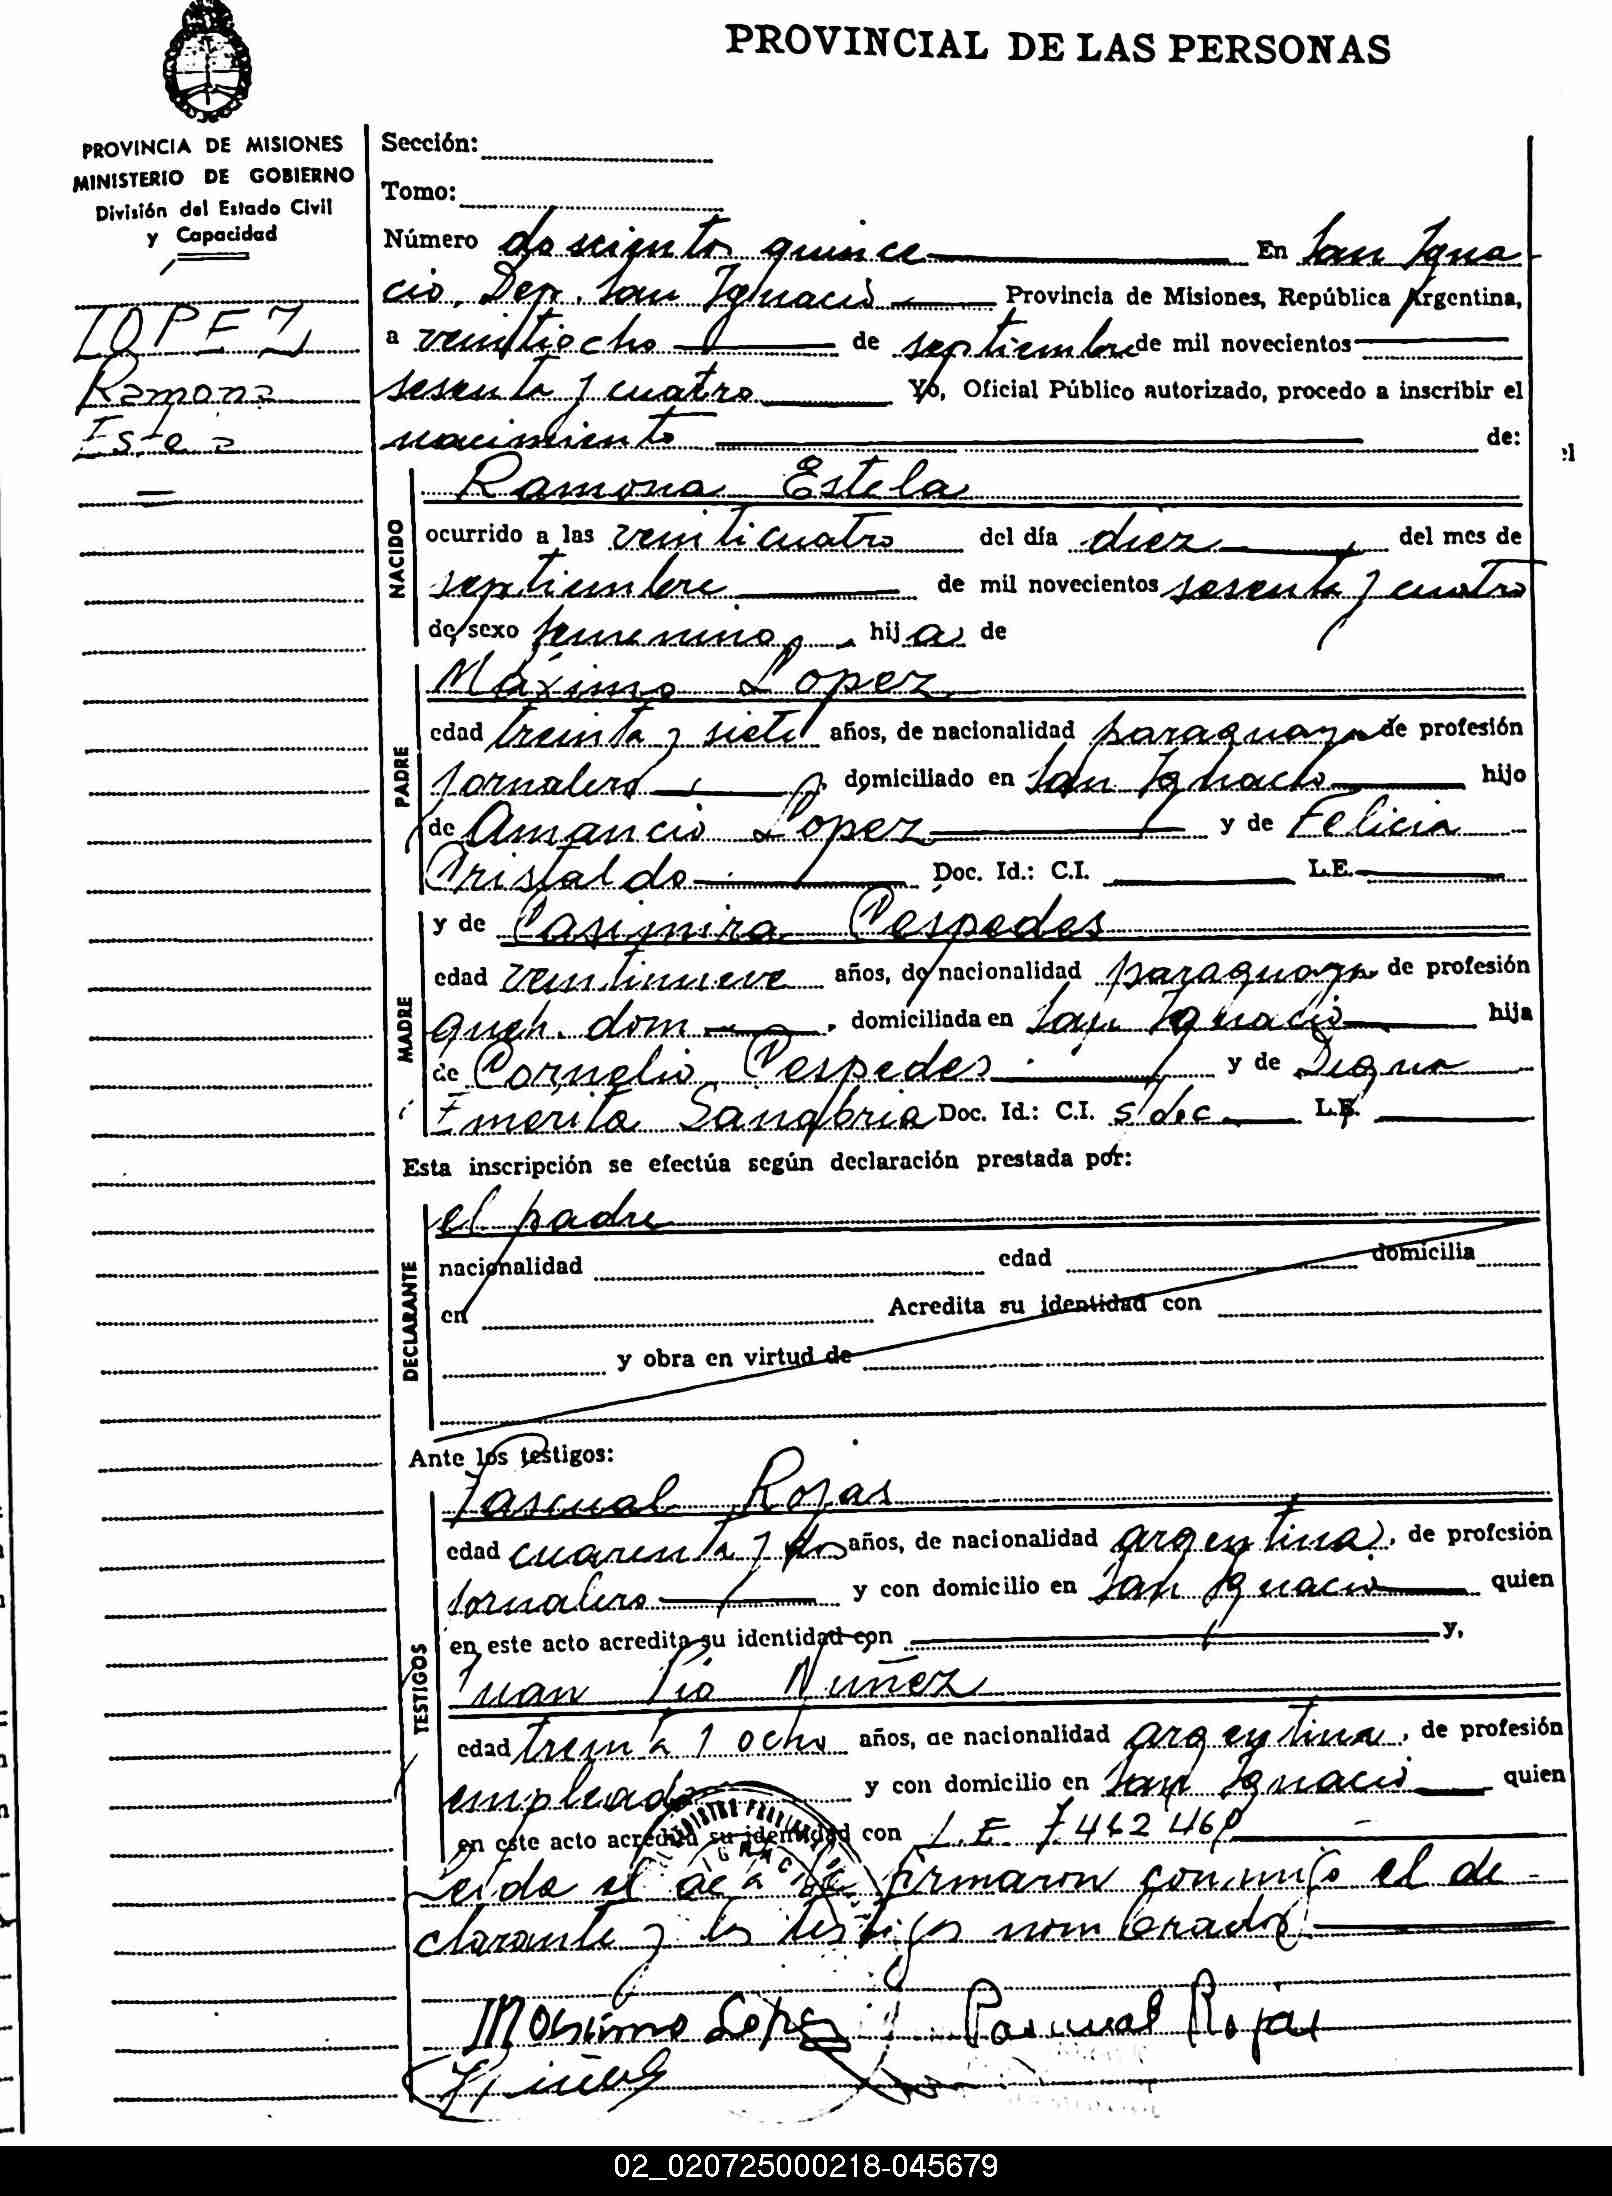 PROVINCIAL DE LAS PERSONAS
PROVINCIA DE MISIONES
MINISTERIO DE GOBIERNO
División del Estado Civil
y Capacidad
LOPEZ
Ramona
Estela
Sección:
Tomo:
Número doscientos quince En San Igna
cio, Dep. San Ignacio Provincia de Misiones, República Argentina,
a veintiocho de septiembre de mil novecientos
sesenta y cuatro Yo, Oficial Público autorizado, procedo a inscribir el
nacimiento de:
el
NACIDO
Ramona Estela
ocurrido a las veinticuatro del día diez del mes de
septiembre de mil novecientos sesenta y cuatro
de sexo femenino, hija de
PADRE
Máximo Lopez
edad treinta y siete años, de nacionalidad paraguaya de profesión
jornalero, domiciliado en San Ignacio hijo
de Amancio Lopez y de Felicia
Cristaldo Doc. Id.: C.I. L.E.
MADRE
y de Casimira Céspedes
edad veintinueve años, de nacionalidad paraguaya de profesión
queh. dom. domiciliada en San Ignacio hija
de Cornelio Cespedes y de Digna
Emerita Sanabria Doc. Id.: C.I. s/doc. L.E.
Esta inscripción se efectúa según declaración prestada por:
DECLARANTE
el padre
nacionalidad edad domicilia
en Acredita su identidad con
y obra en virtud de
Ante los testigos:
TESTIGOS
Pascual Rojas
edad cuarenta y dos años, de nacionalidad argentina, de profesión
jornalero y con domicilio en San Ignacio quien
en este acto acredita su identidad con y,
Juan Pío Nuñez
edad treinta y ocho años, de nacionalidad argentina, de profesión
empleado y con domicilio en San Ignacio quien
en este acto acredita su identidad con L.E. 7462460
Leída el acta la firmaron conmigo el de-
clarante y los testigos nombrados.
Maximo Lopez Pascual Rojas
02_020725000218-045679